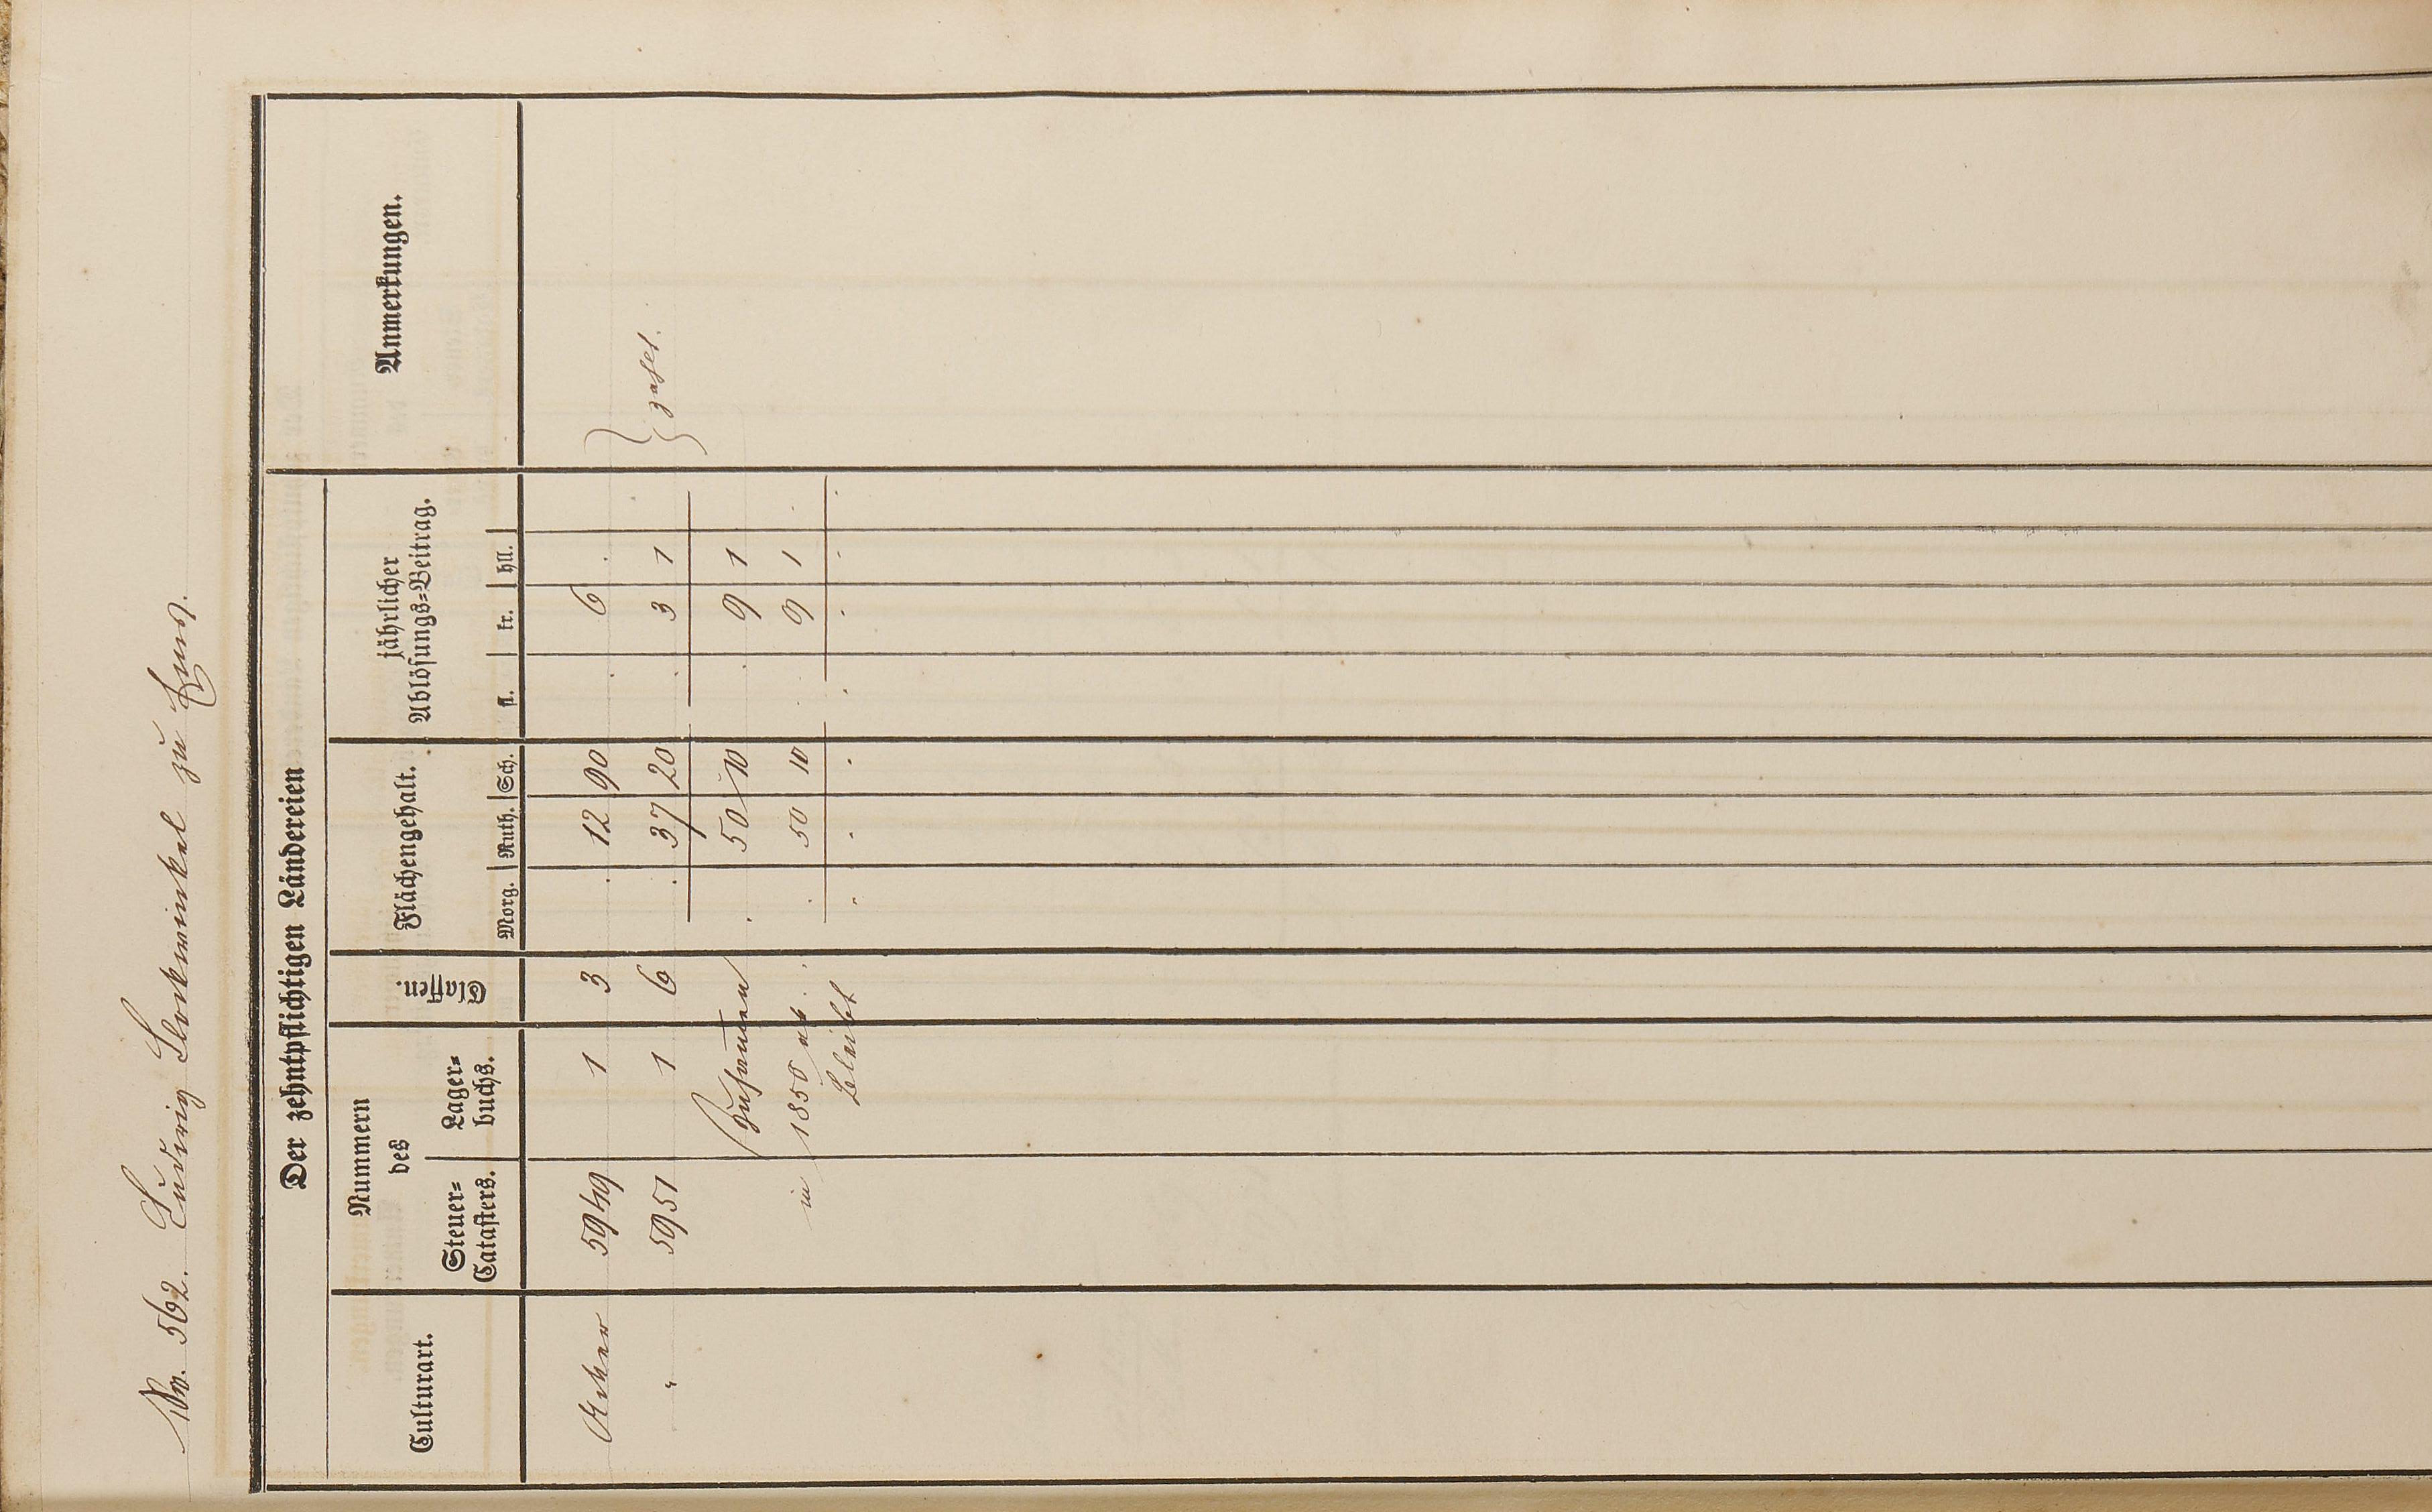 No. 562. Ludwig Stockwinkel zu Ems.
Der zehntpflichtigen Ländereien
Culturart.
Nummern
des
Steuer=
Catasters.
Lager=
buchs.
Classen.
Flächengehalt.
Morg. Ruth. Sch.
jährlicher
Ablösungs=Beitrag.
fl. kr. hll.
Anmerkungen.
Acker 5949 1 3 . 12 90 . 6 .
" 5951 1 6 . 37 20 . 3 1
} zahlt.
Zusammen . 50 10 . 9 1
in 1850 ab . . 50 10 . 9 1
Bleibt . . . . . .